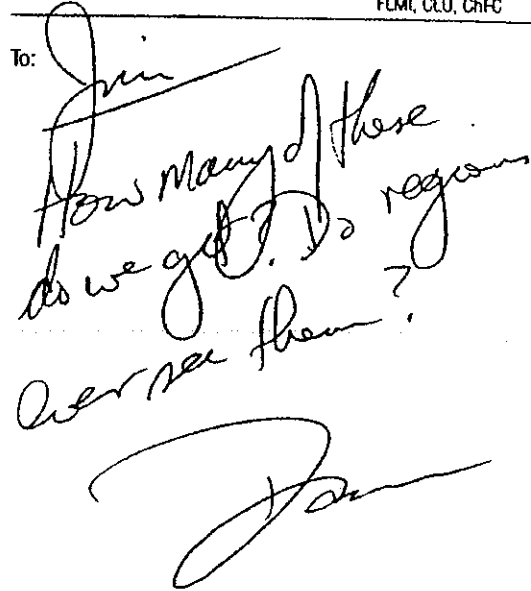 FLMI, CLU, ChFC
To: Jim
How many of these
do we get? Do regions
ever see them?